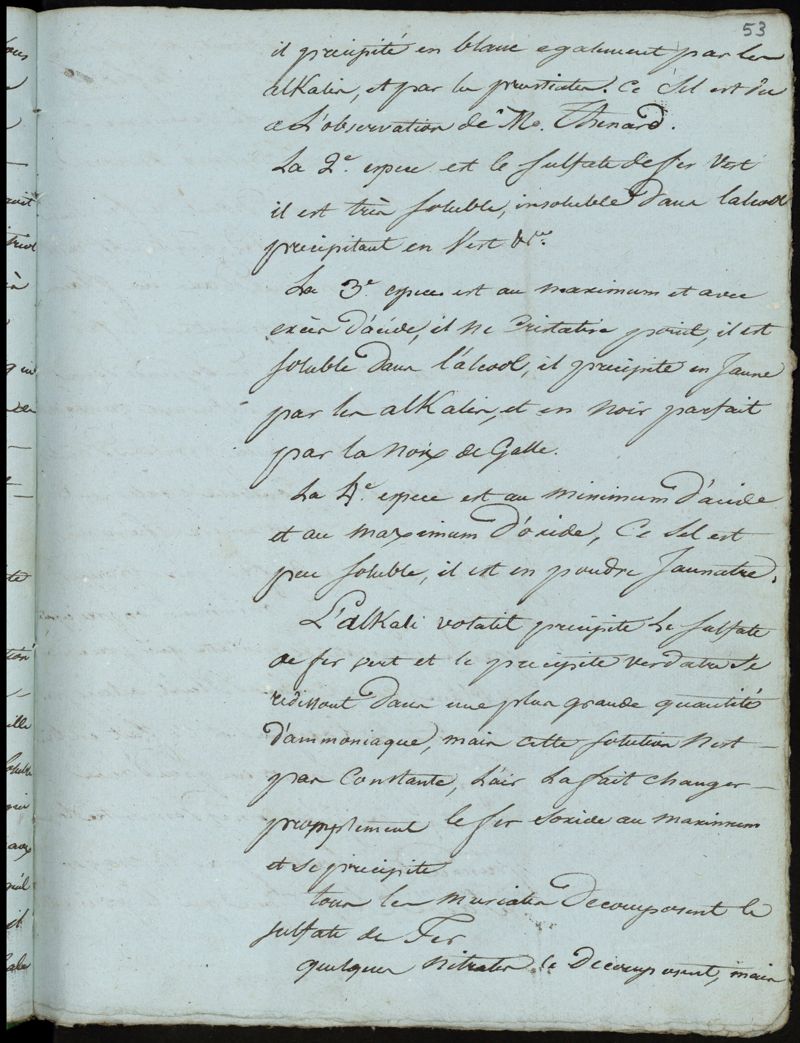 53
il precipité en blanc egalement par les
alKalis, et par les prussiates. Ce Sel est du
a L'observation de Mr. Thenard.
La 2e. espece est le sulfate de fer vert
il est très soluble, insoluble dans lalcool
precipitant en Vert &ca.
La 3e. espece est au maximum et avec
excès d'acide, il ne Cristalise point, il est
soluble dans l'alcool, il precipite en Jaune
par les alKalis, et en noir parfait
par la Noix de Galle.
La 4e. espece est au minimum d'acide
et au maximum d'oxide, Ce Sel est
peu soluble, il est en poudre Jaunatre.
L'alKali volatil precipite Le sulfate
de fer vert et le precipité verdatre Se
redissout dans une plus grande quantité
d'ammoniaque, mais cette solution n'est
pas Constante, L'air La fait changer
promptement le fer soxide au maximum
et se precipite
tous les muriates Decomposent le
sulfate de Fer
quelques Nitrates le Decomposent, mais